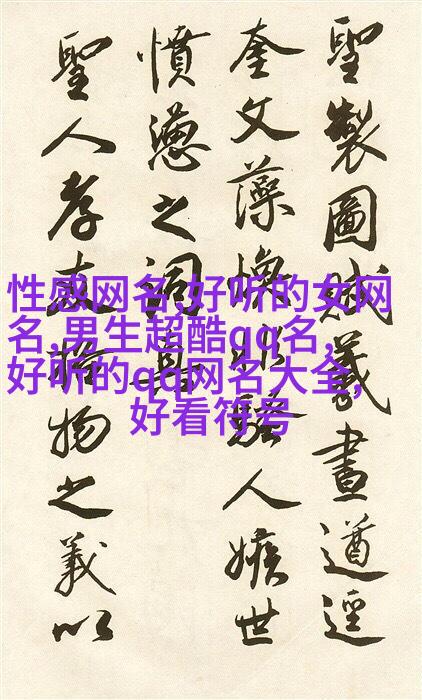 聖製圖賦羲畫遒逕
奎文藻煥眡騷人嫉世
憤懣之詞異
聖人孝友格物之義以
性感网名,好听的女网
名,男生超酷qq名,
好听的qq网名大全,
好看符号